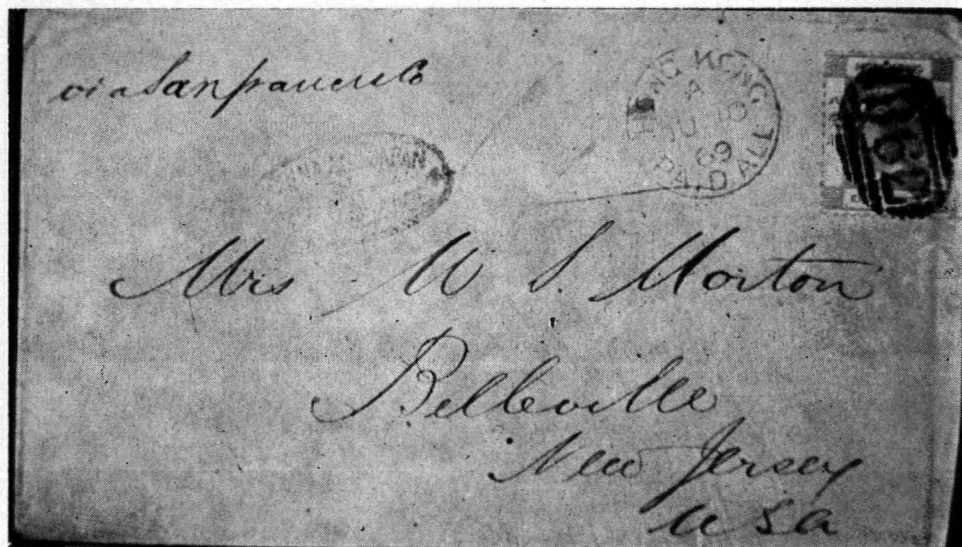 via San francisco
HONG KONG
A
JU 10
69
PAID ALL
B62
JAPAN
Mrs W S. Morton
Belleville
New Jersey
USA